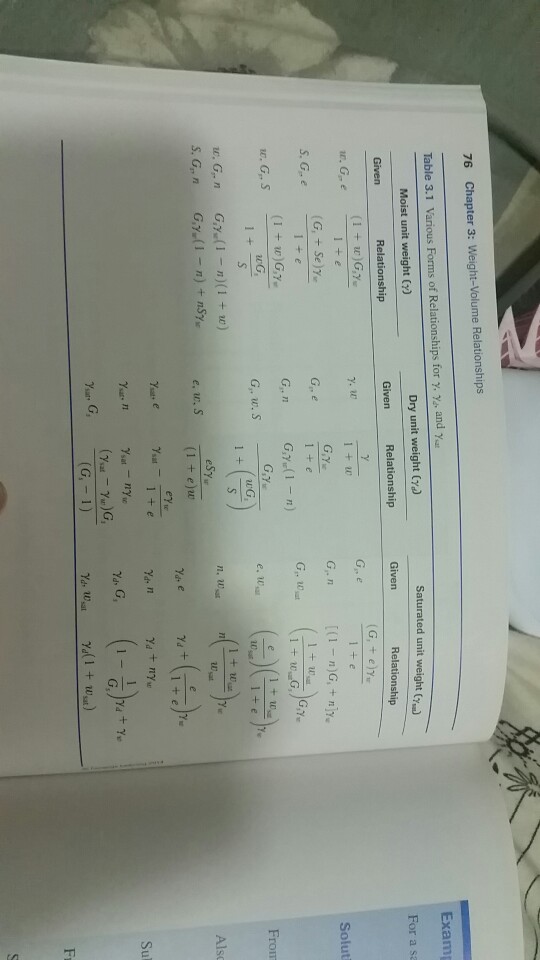 76 Chapter 3: Weight–Volume Relationships
Table 3.1 Various Forms of Relationships for γ, γd, and γsat
Moist unit weight (γ) Dry unit weight (γd) Saturated unit weight (γsat)
Given Relationship Given Relationship Given Relationship
w, Gs, e (1 + w)Gsγw / 1 + e γ, w γ / 1 + w Gs, e (Gs + e)γw / 1 + e
S, Gs, e (Gs + Se)γw / 1 + e Gs, e Gsγw / 1 + e Gs, n [(1 − n)Gs + n]γw
w, Gs, S (1 + w)Gsγw / 1 + wGs/S Gs, n Gsγw(1 − n) Gs, wsat (1 + wsat / 1 + wsatGs)Gsγw
w, Gs, n Gsγw(1 − n)(1 + w) Gs, w, S Gsγw / 1 + (wGs/S) e, wsat (e / wsat)(1 + wsat / 1 + e)γw
S, Gs, n Gsγw(1 − n) + nSγw e, w, S eSγw / (1 + e)w n, wsat n(1 + wsat / wsat)γw
γsat, e γsat − eγw / 1 + e γd, e γd + (e / 1 + e)γw
γsat, n γsat − nγw γd, n γd + nγw
γsat, Gs (γsat − γw)Gs / (Gs − 1) γd, Gs (1 − 1/Gs)γd + γw
γd, wsat γd(1 + wsat)
Exam
For a
Solut
From
Also
Su
F
S